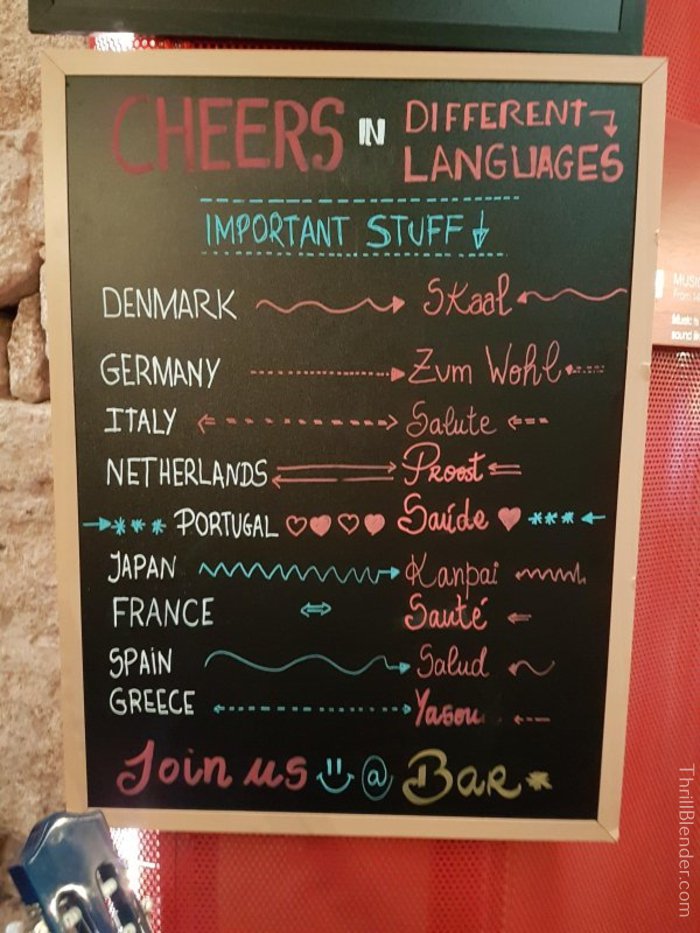 CHEERS IN DIFFERENT LANGUAGES
IMPORTANT STUFF
DENMARK Skaal
GERMANY Zum Wohl
ITALY Salute
NETHERLANDS Proost
PORTUGAL Saúde
JAPAN Kanpai
FRANCE Santé
SPAIN Salud
GREECE Yasou
Join us @ Bar
MUSIC
From
Music is
sound
ThrillBlender.com